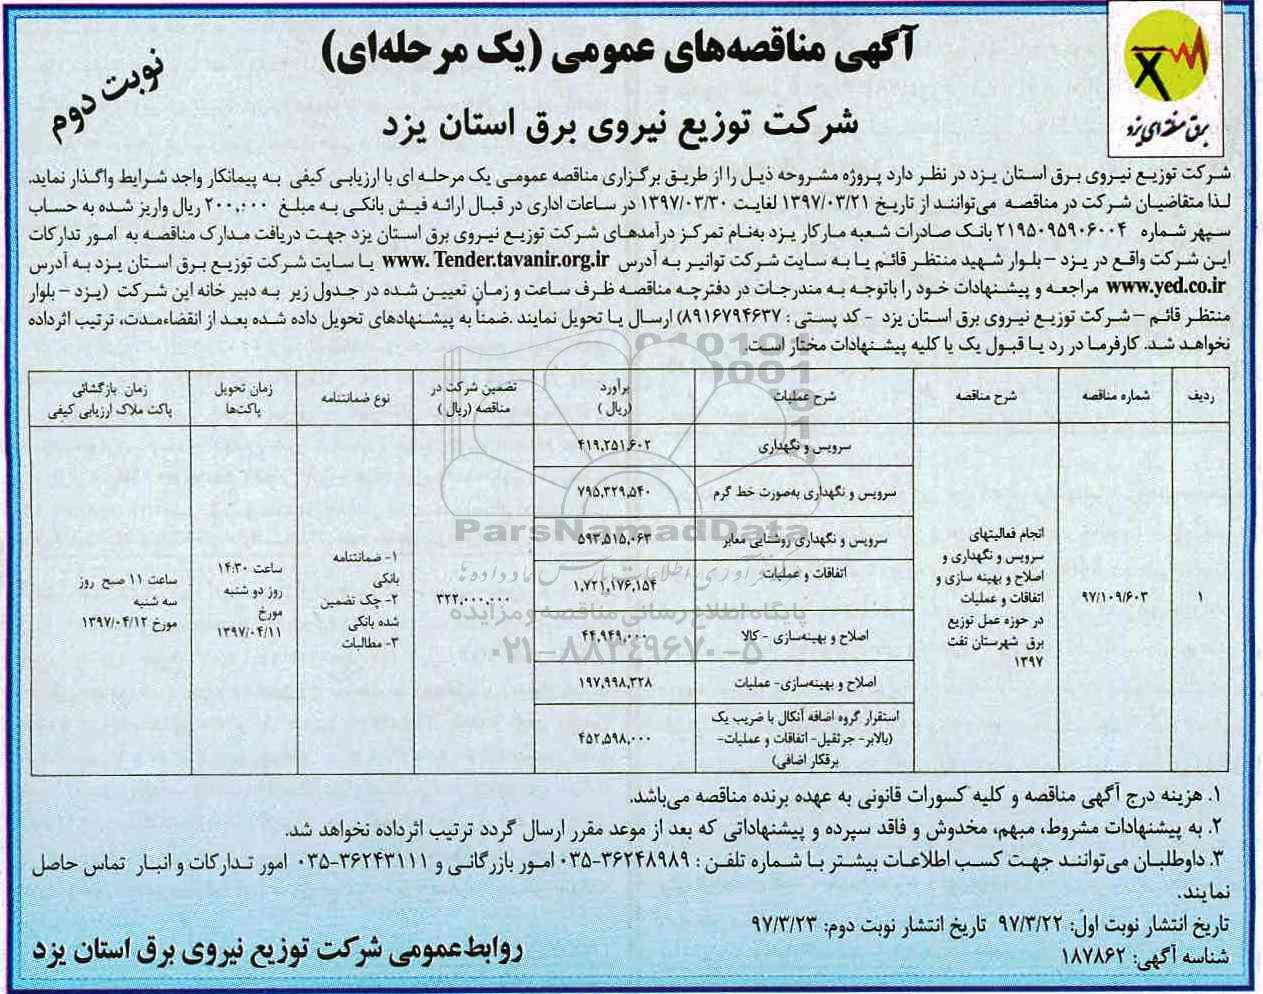 آگهی مناقصه‌های عمومی (یک مرحله‌ای)
نوبت دوم
برق منطقه‌ای یزد
شرکت توزیع نیروی برق استان یزد
شرکت توزیع نیروی برق استان یزد در نظر دارد پروژه مشروحه ذیل را از طریق برگزاری مناقصه عمومی یک مرحله ای با ارزیابی کیفی به پیمانکار واجد شرایط واگذار نماید.
لذا متقاضیان شرکت در مناقصه می‌توانند از تاریخ ۱۳۹۷/۰۳/۲۱ لغایت ۱۳۹۷/۰۳/۳۰ در ساعات اداری در قبال ارائه فیش بانکی به مبلغ ۲۰۰,۰۰۰ ریال واریز شده به حساب
سپهر شماره ۲۱۹۵۰۹۵۹۰۶۰۰۴ بانک صادرات شعبه مارکار یزد به‌نام تمرکز درآمدهای شرکت توزیع نیروی برق استان یزد جهت دریافت مدارک مناقصه به امور تدارکات
این شرکت واقع در یزد – بلوار شهید منتظر قائم یا به سایت شرکت توانیر به آدرس www. Tender.tavanir.org.ir یا سایت شرکت توزیع برق استان یزد به آدرس
www.yed.co.ir مراجعه و پیشنهادات خود را باتوجه به مندرجات در دفترچه مناقصه ظرف ساعت و زمان تعیین شده در جدول زیر به دبیر خانه این شرکت (یزد – بلوار
منتظر قائم – شرکت توزیع نیروی برق استان یزد - کد پستی : ۸۹۱۶۷۹۴۶۳۷) ارسال یا تحویل نمایند .ضمناً به پیشنهادهای تحویل داده شده بعد از انقضاءمدت، ترتیب اثرداده
نخواهد شد. کارفرما در رد یا قبول یک یا کلیه پیشنهادات مختار است.
ردیف
شماره مناقصه
شرح مناقصه
شرح عملیات
برآورد
(ریال )
تضمین شرکت در
مناقصه (ریال )
نوع ضمانتنامه
زمان تحویل
پاکت‌ها
زمان بازگشائی
پاکت ملاک ارزیابی کیفی
۱
۹۷/۱۰۹/۶۰۳
انجام فعالیتهای
سرویس و نگهداری و
اصلاح و بهینه سازی و
اتفاقات و عملیات
در حوزه عمل توزیع
برق شهرستان تفت
۱۳۹۷
سرویس و نگهداری
۴۱۹,۲۵۱,۶۰۲
سرویس و نگهداری به‌صورت خط گرم
۷۹۵,۳۲۹,۵۴۰
سرویس و نگهداری روشنایی معابر
۵۹۳,۵۱۵,۰۶۳
اتفاقات و عملیات
۱,۷۲۱,۱۷۶,۱۵۴
اصلاح و بهینه‌سازی - کالا
۴۴,۹۴۹,۰۰۰
اصلاح و بهینه‌سازی- عملیات
۱۹۷,۹۹۸,۳۲۸
استقرار گروه اضافه آنکال با ضریب یک
(بالابر- جرثقیل- اتفاقات و عملیات-
برقکار اضافی)
۴۵۲,۵۹۸,۰۰۰
۳۲۲,۰۰۰,۰۰۰
۱- ضمانتنامه
بانکی
۲- چک تضمین
شده بانکی
۳- مطالبات
ساعت ۱۴:۳۰
روز دو شنبه
مورخ
۱۳۹۷/۰۴/۱۱
ساعت ۱۱ صبح روز
سه شنبه
مورخ ۱۳۹۷/۰۴/۱۲
ParsNamadData
پایگاه اطلاع رسانی مناقصه و مزایده
۰۲۱-۸۸۳۴۹۶۷۰-۵
۱. هزینه درج آگهی مناقصه و کلیه کسورات قانونی به عهده برنده مناقصه می‌باشد.
۲. به پیشنهادات مشروط، مبهم، مخدوش و فاقد سپرده و پیشنهاداتی که بعد از موعد مقرر ارسال گردد ترتیب اثرداده نخواهد شد.
۳. داوطلبان می‌توانند جهت کسب اطلاعات بیشتر با شماره تلفن : ۳۶۲۴۸۹۸۹-۰۳۵ امور بازرگانی و ۳۶۲۴۳۱۱۱-۰۳۵ امور تدارکات و انبار تماس حاصل
نمایند.
تاریخ انتشار نوبت اول: ۹۷/۳/۲۲ تاریخ انتشار نوبت دوم: ۹۷/۳/۲۳
شناسه آگهی: ۱۸۷۸۶۲
روابط‌عمومی شرکت توزیع نیروی برق استان یزد